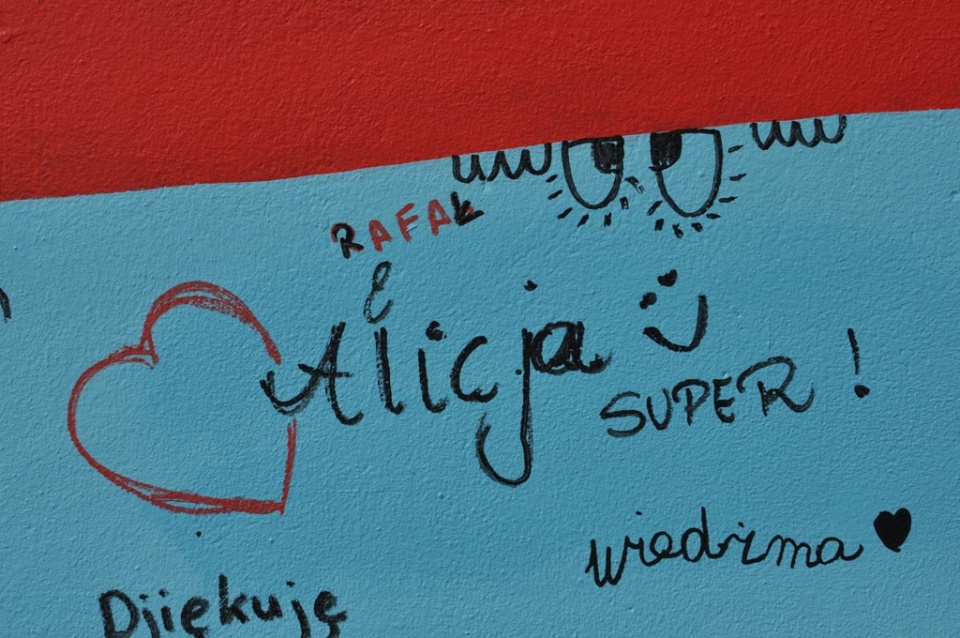 RAFAŁ
Alicja
SUPER !
wiedźma
Djiękuję